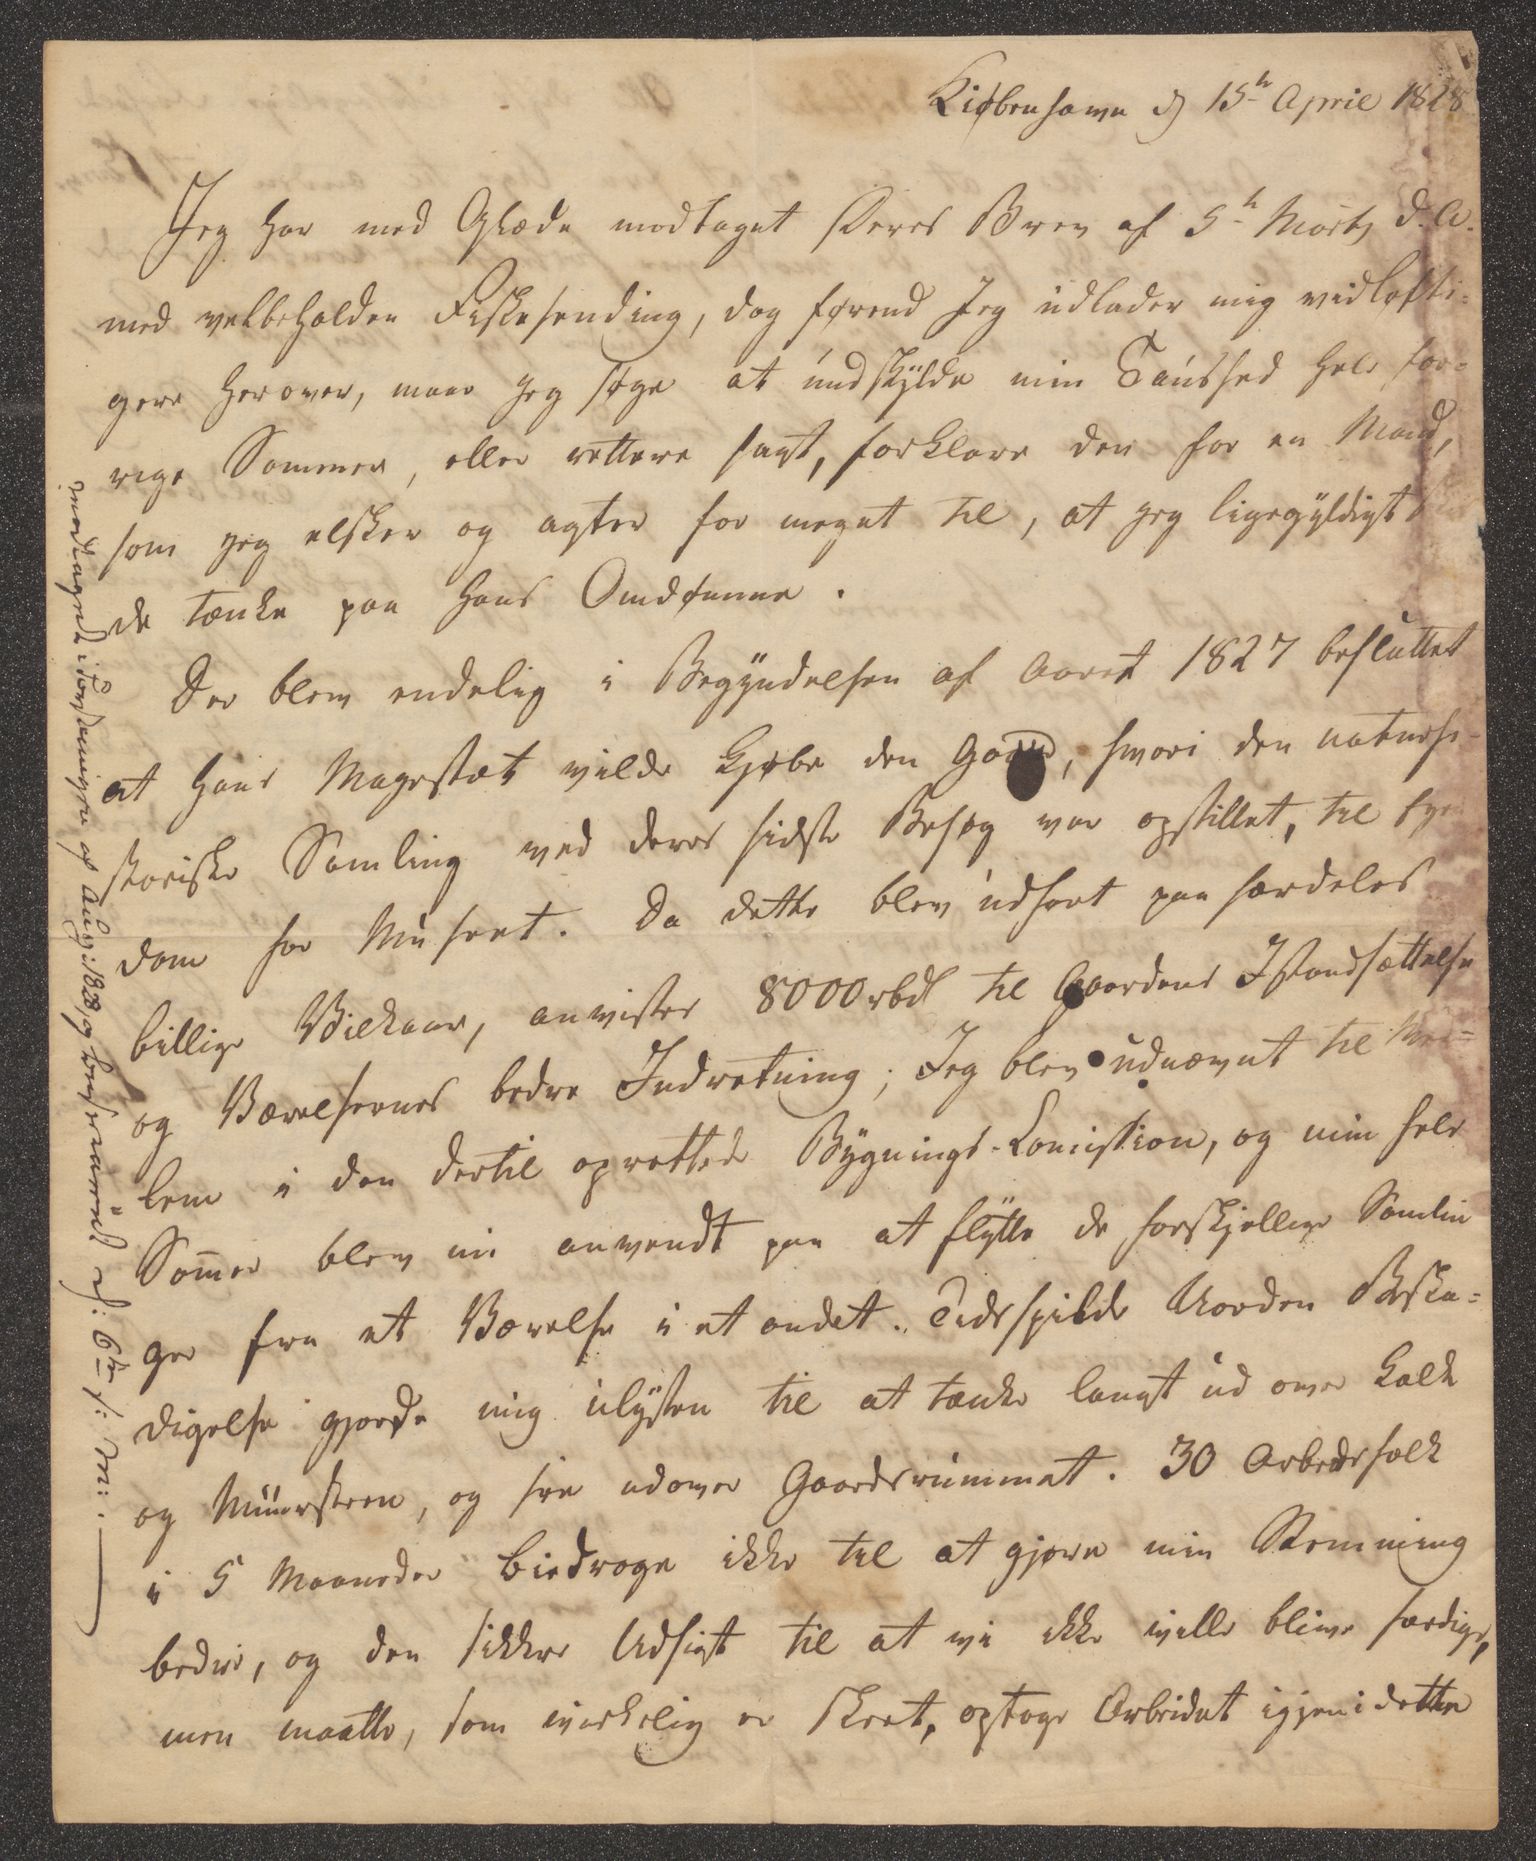 Kiøbenhavn d 15de April 1828
Jeg har med Glæde modtaget Deres Brev af 5te Marts d. A.
med velbeholden Fiskesending, dog førend Jeg udlader mig vidløfti-
gere herover, maae jeg søge at undskylde min Taushed hele for-
rige Sommer, eller rettere sagt, forklare den for en Mand,
som jeg elsker og agter for meget til, at jeg ligegyldigt
de tænke paa hans Omdømme.
Der blev endelig i Begyndelsen af Aaret 1827 besluttet
at Hans Magestæt vilde kjøbe den Gaard, hvori den naturhi-
storiske Samling ved deres sidste Besøg var opstillet, til Eyen
dom for Museet. Da dette blev udført paa særdeles
billige Vilkaar, anvistes 8000 rbd til Gaardens Istandsættelse
og Værelsernes bedre Indretning; Jeg blev udnævnt til Med=
lem i den dertil oprettede Bygnings-Comission, og min hele
Som̄er blev nu anvendt paa at flytte de forskjellige Samlin
ger fra et Værelse i et andet. Tidsspilde Uorden Beska=
digelse gjorde mig ulysten til at tænke langt ud over Kalk
og Muursteen, og see udover Gaardsrummet. 30 Arbeidsfolk
i 5 Maaneder bidroge ikke til at gjøre min Stemning
bedre, og den sikkre Udsigt til at vi ikke ville blive færdige,
men maatte, som virkelig er skeet, optage Arbeidet igjen i dette
modtaget i Forsamlingen af Aug: 1828, og besvaret d: 6te s: M: